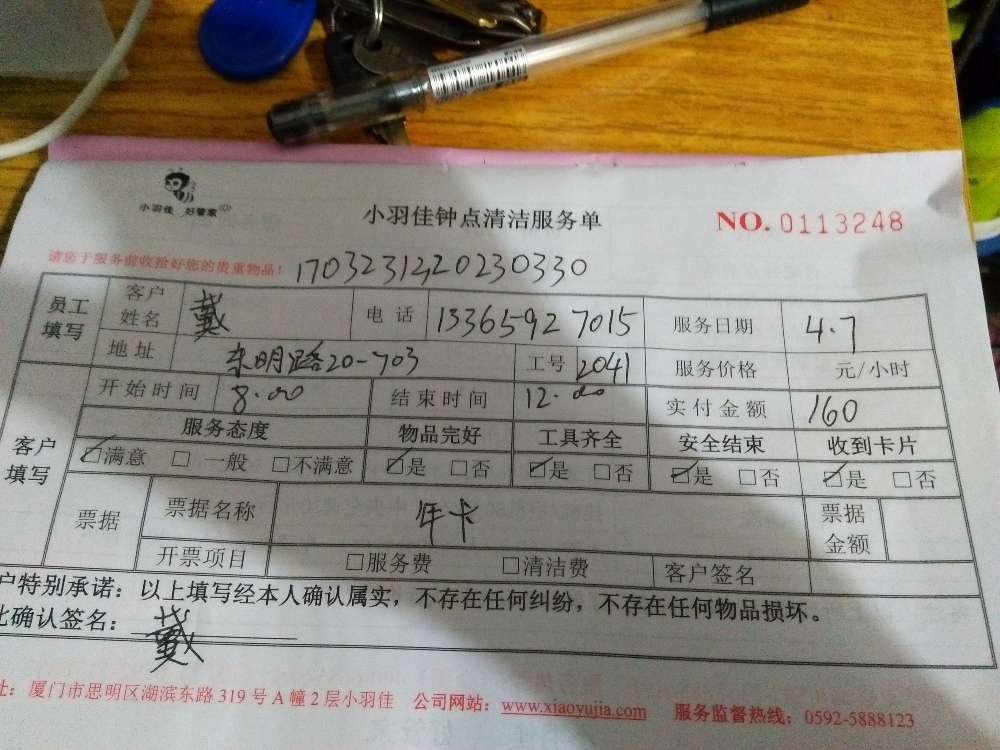 小羽佳 好管家
小羽佳钟点清洁服务单
NO. 0113248
请您于服务前收拾好您的贵重物品!
员工填写 客户姓名 戴 电话 13365927015 服务日期 4.7
地址 东明路20-703 工号 2041 服务价格 元/小时
客户填写 开始时间 8.00 结束时间 12.00 实付金额 160
服务态度 物品完好 工具齐全 安全结束 收到卡片
☑满意 □一般 □不满意 ☑是 □否 ☑是 □否 ☑是 □否 ☑是 □否
票据 票据名称 年卡 票据金额
开票项目 □服务费 □清洁费 客户签名
户特别承诺:以上填写经本人确认属实,不存在任何纠纷,不存在任何物品损坏。
此确认签名: 戴
址:厦门市思明区湖滨东路319号A幢2层小羽佳 公司网站:www.xiaoyujia.com 服务监督热线:0592-5888123